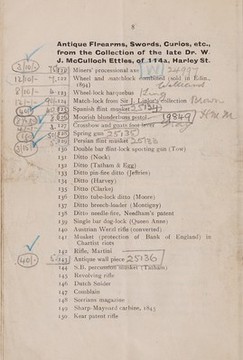 8
Antique Firearms, Swords, Curios, etc.,
from the Collection of the late Dr. W.
J. McCulloch Ettles, of 114a, Harley St.
Miners' processional axe
122 Wheel and matchlock combined (sold in Edin.
1894)
123 Wheel-lock harquebus
124 Match-lock from Sir J. collection
Spanish flint musket
126 Moorish blunderbuss pistol 19849
Crossbow and goats foot lever
Spring gun 25135
Persian flint musket
130 Double bar flint-lock spotting gun (Tow)
131 Ditto (Nock)
132 Ditto (Tatham & Egg)
133 Ditto pin-fire ditto (Jeffries)
134 Ditto (Harvey)
135 Ditto (Clarke)
136 Ditto tube-lock ditto (Moore)
137 Ditto breech-loader (Montigny)
138 Ditto needle-fire, Needham's patent
139 Single bar dog-lock (Queen Anne)
140 Austrian Werzl rifle (converted)
141 Musket (protection of Bank of England) in
Chartist riots
142 Rifle, Martini
40/- 143 Antique wall piece 25136
144 S.B. percussion musket (Tatham)
145 Revolving rifle
146 Dutch Snider
147 Comblain
148 Soerinne magazine
149 Sharp-Maynard carbine, 1845
150 Rear patent rifle